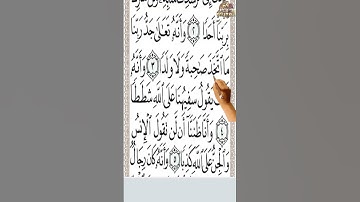 بِرَبِّنَا أَحَدًا ٢ وَأَنَّهُ تَعَالَىٰ جَدُّ رَبِّنَا
مَا اتَّخَذَ صَاحِبَةً وَلَا وَلَدًا ٣ وَأَنَّهُ
يَقُولُ سَفِيهُنَا عَلَى اللَّهِ شَطَطًا
٤ وَأَنَّا ظَنَنَّا أَن لَّن تَقُولَ الْإِنسُ
وَالْجِنُّ عَلَى اللَّهِ كَذِبًا ٥ وَأَنَّهُ كَانَ رِجَالٌ